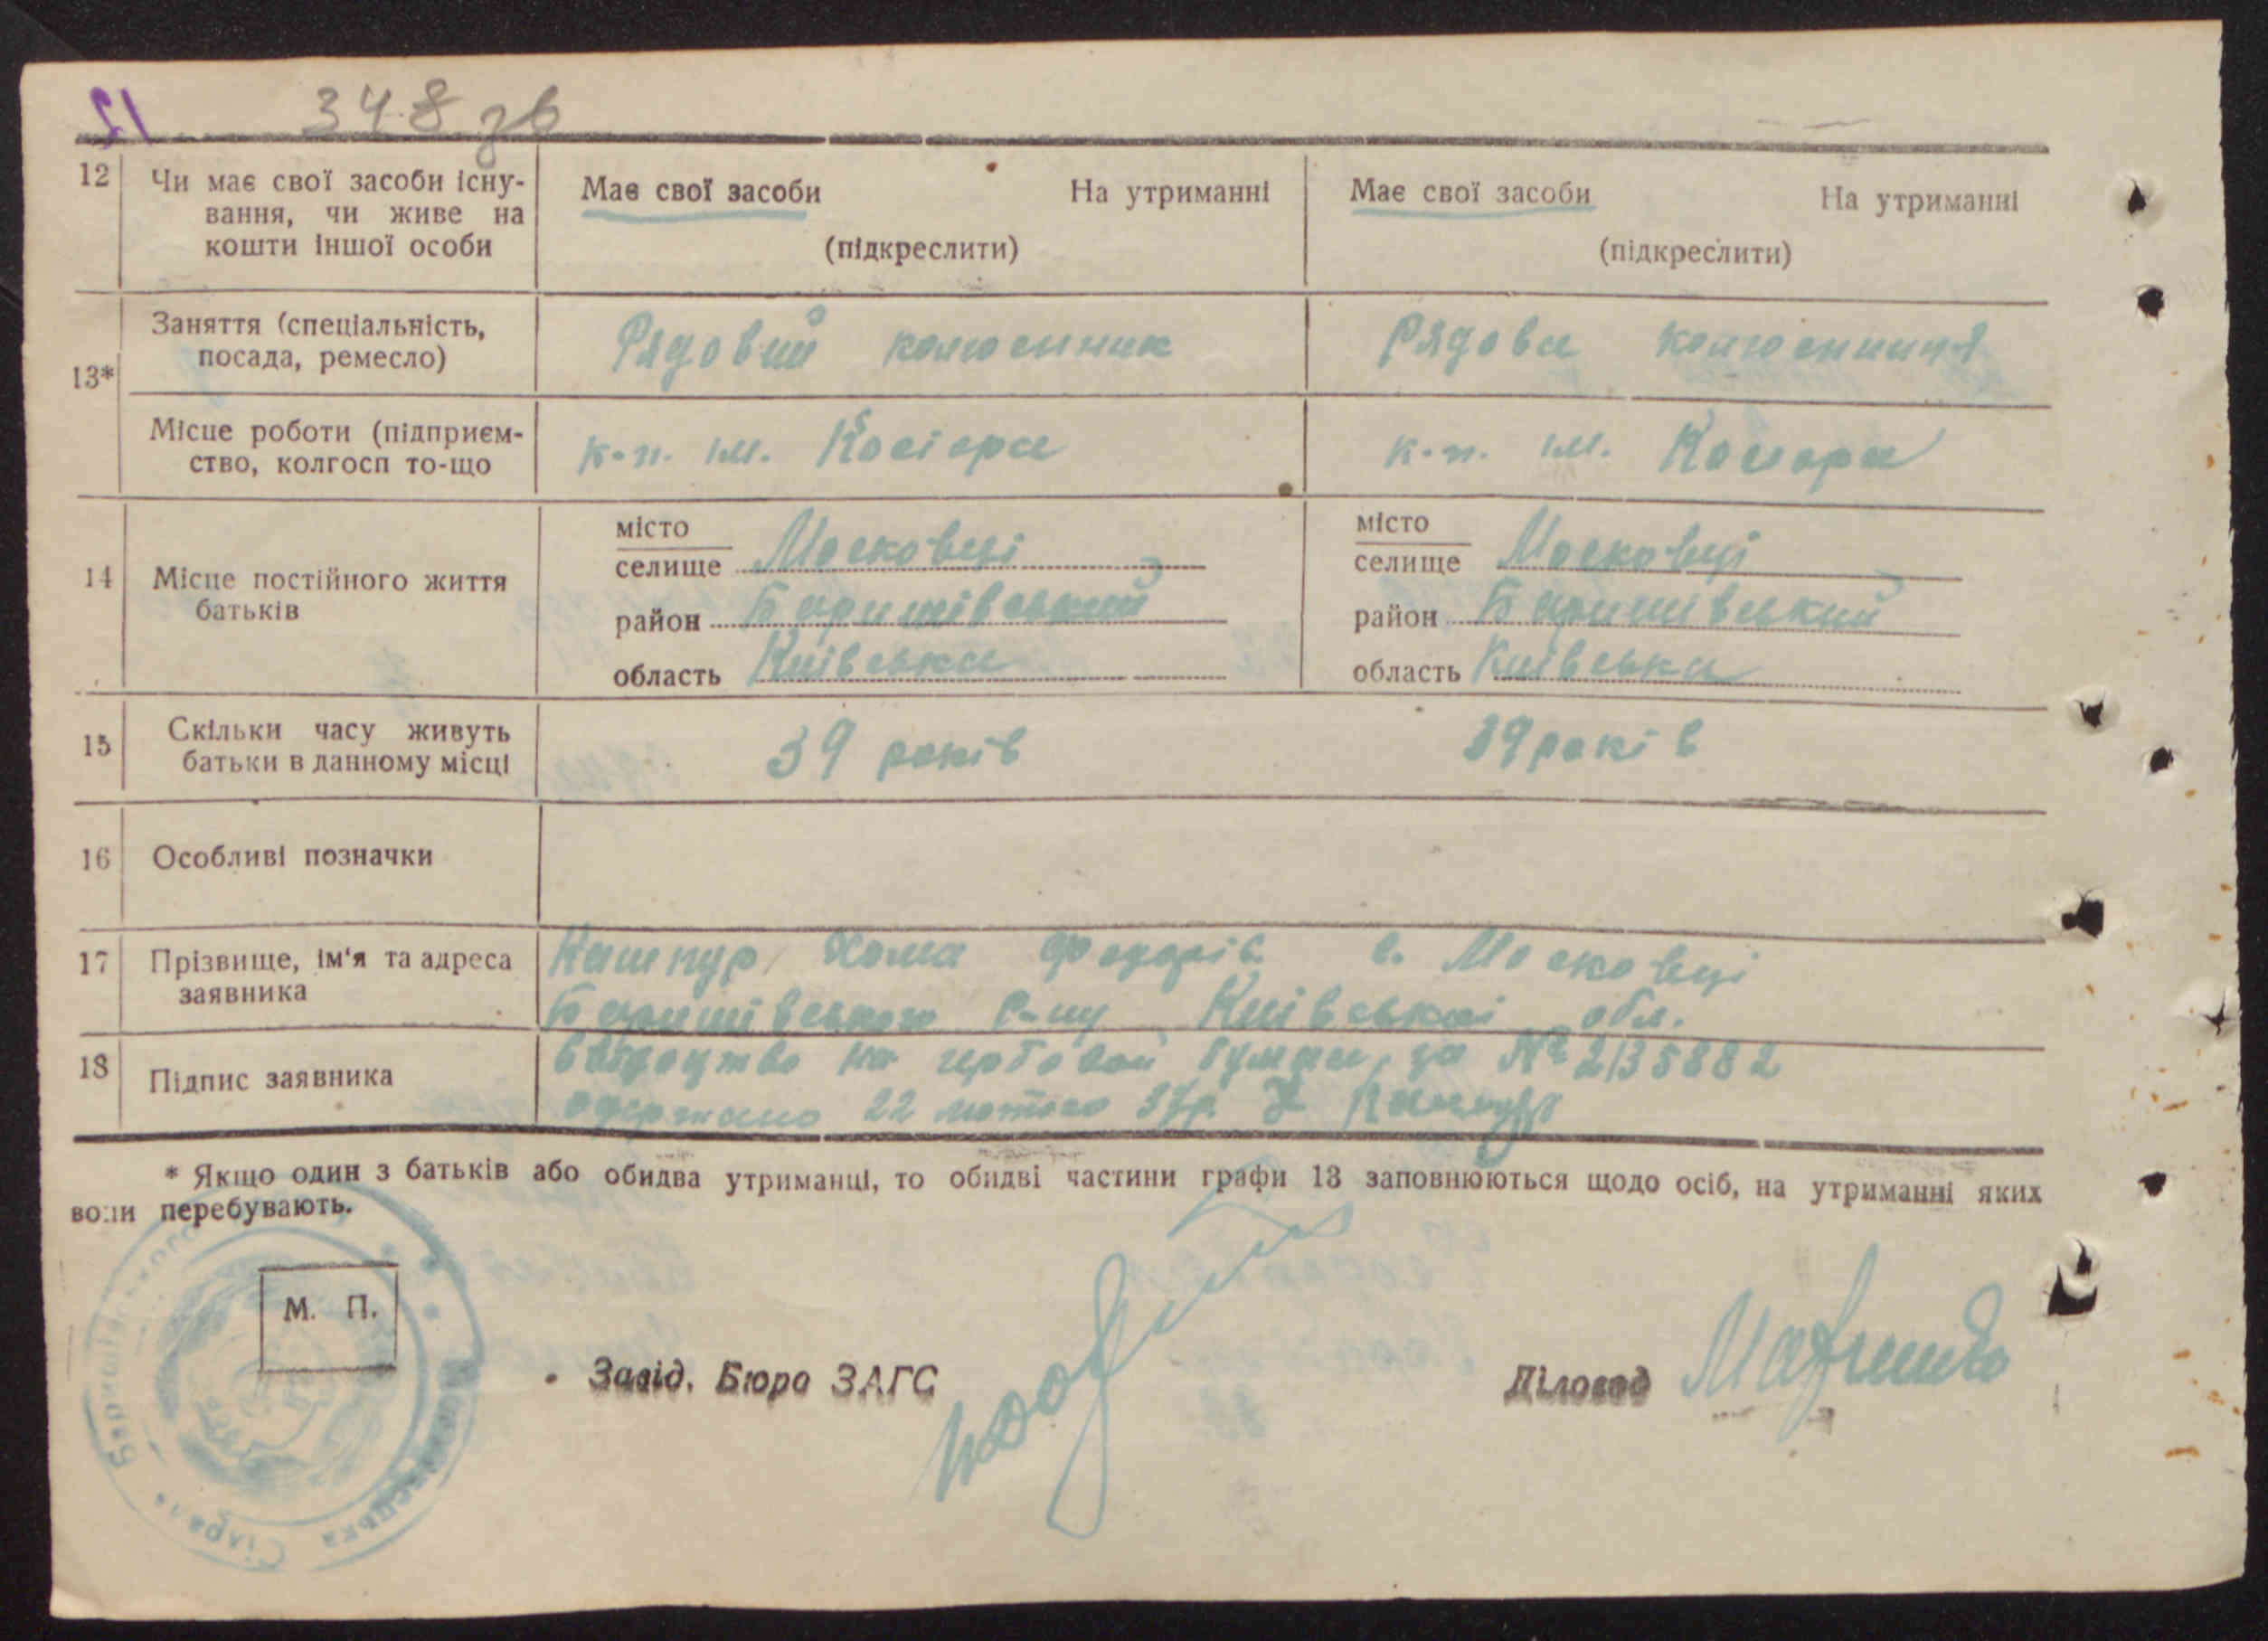 51 348 зв
12 Чи має свої засоби існу-
вання, чи живе на
кошти іншої особи
Має свої засоби На утриманні
(підкреслити)
Має свої засоби На утриманні
(підкреслити)
13*
Заняття (спеціальність,
посада, ремесло)
Рядовий колгоспник
Рядова колгоспниця
Місце роботи (підприєм-
ство, колгосп то-що
к-п. ім. Косіора
к-п. ім. Косіора
14 Місце постійного життя
батьків
місто
селище Московці
район Баришівський
область Київська
місто
селище Московці
район Баришівський
область Київська
15 Скільки часу живуть
батьки в данному місці
39 років
39 років
16 Особливі позначки
17 Прізвище, ім'я та адреса
заявника
Кашпур Хома Федорів с. Московці
Баришівського р-ну Київської обл.
18 Підпис заявника
свідоцтво на гербовой бумаги за № 2135882
одержано 22 лютого 37р. Х Кашпур
* Якщо один з батьків або обидва утриманці, то обидві частини графи 13 заповнюються щодо осіб, на утриманні яких
вони перебувають.
М. П.
Завід. Бюро ЗАГС
Діловод